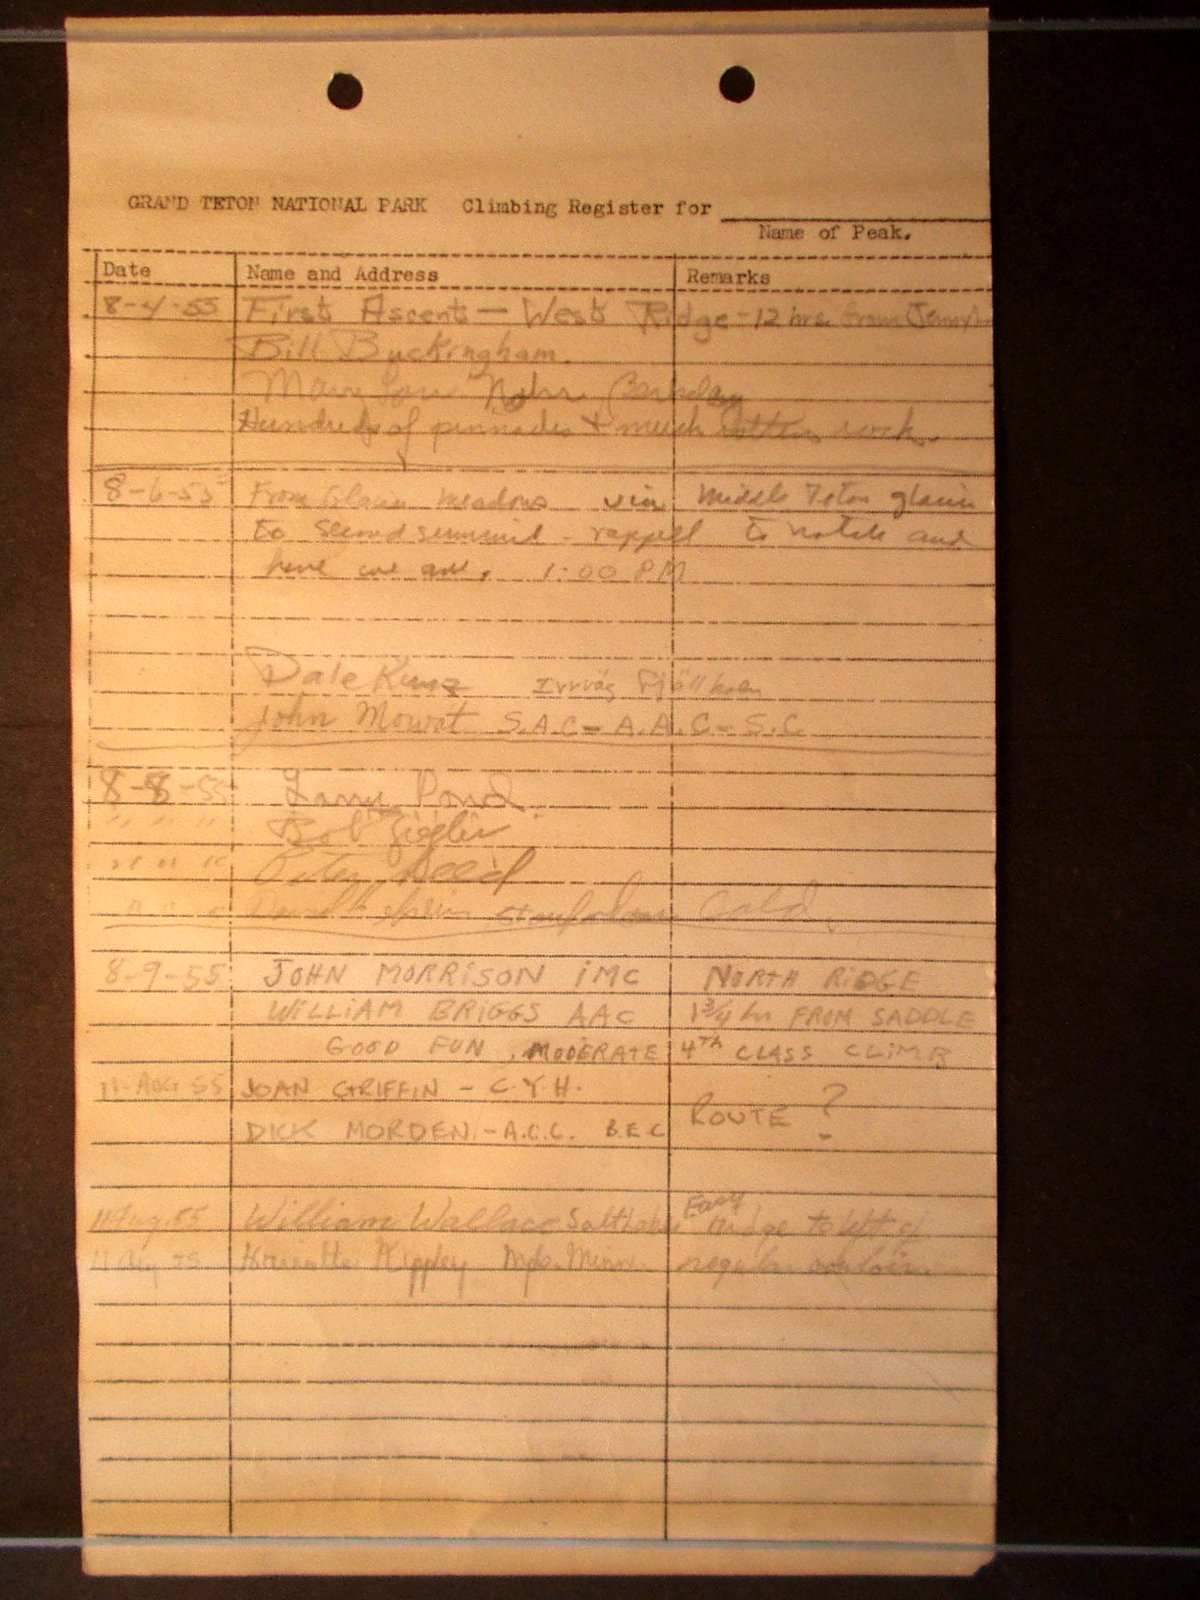 GRAND TETON NATIONAL PARK Climbing Register for
Name of Peak.
Date Name and Address Remarks
8-4-55 First Ascent — West Ridge - 12 hrs. from Jenny
Bill Buckingham.
Mary Lou
Hundreds of pinnacles + much rotten rock.
8-6-55 From Glacier meadows via Middle Teton glacier
to second summit - rappell to notch and
here we are. 1:00 PM
Dale Kunz
John Mowat S.A.C = A.A.C = S.C.
8-8-55 Larry Pond
" " " Bob Ziegler
" " " Peter Reed
" " "
8-9-55 JOHN MORRISON IMC NORTH RIDGE
WILLIAM BRIGGS AAC 1 3/4 hr FROM SADDLE
GOOD FUN, MODERATE 4TH CLASS CLIMB
11-AUG 55 JOAN GRIFFIN - C.Y.H.
DICK MORDEN - A.C.C. B.E.C ROUTE ?
11 Aug 55 William Wallace Easy ridge to left of
11 Aug 55 Mpls. Minn. regular